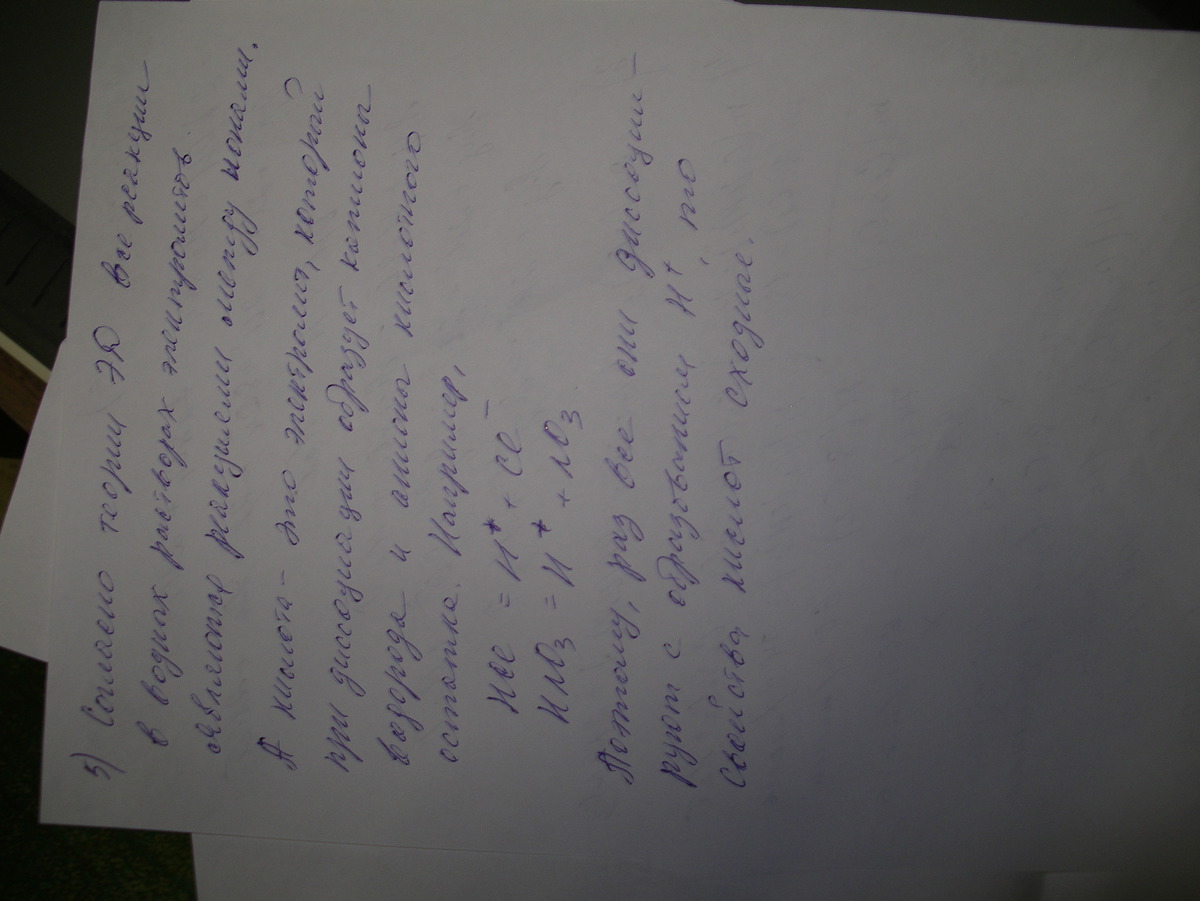 5) Согласно теории ЭД все реакции
в водных растворах электролитов
являются реакциями между ионами.
А кислота - это электролит, который
при диссоциации образует катионы
водорода и анионы кислотного
остатка. Например,
HCl = H⁺ + Cl⁻
HNO₃ = H⁺ + NO₃
Поэтому, раз все они диссоции-
руют с образованием H⁺, то
свойства кислот сходные.